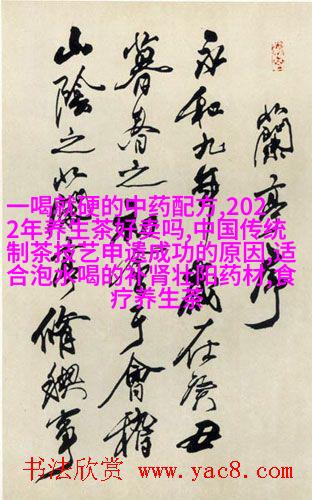 蘭亭序
永和九年歲在癸丑
暮春之初會于會稽
山陰之蘭亭脩禊事
一喝就硬的中药配方,202
2年养生茶好卖吗,中国传统
制茶技艺申遗成功的原因,适
合泡水喝的补肾壮阳药材,食
疗养生茶
书法欣赏 www.yac8.com